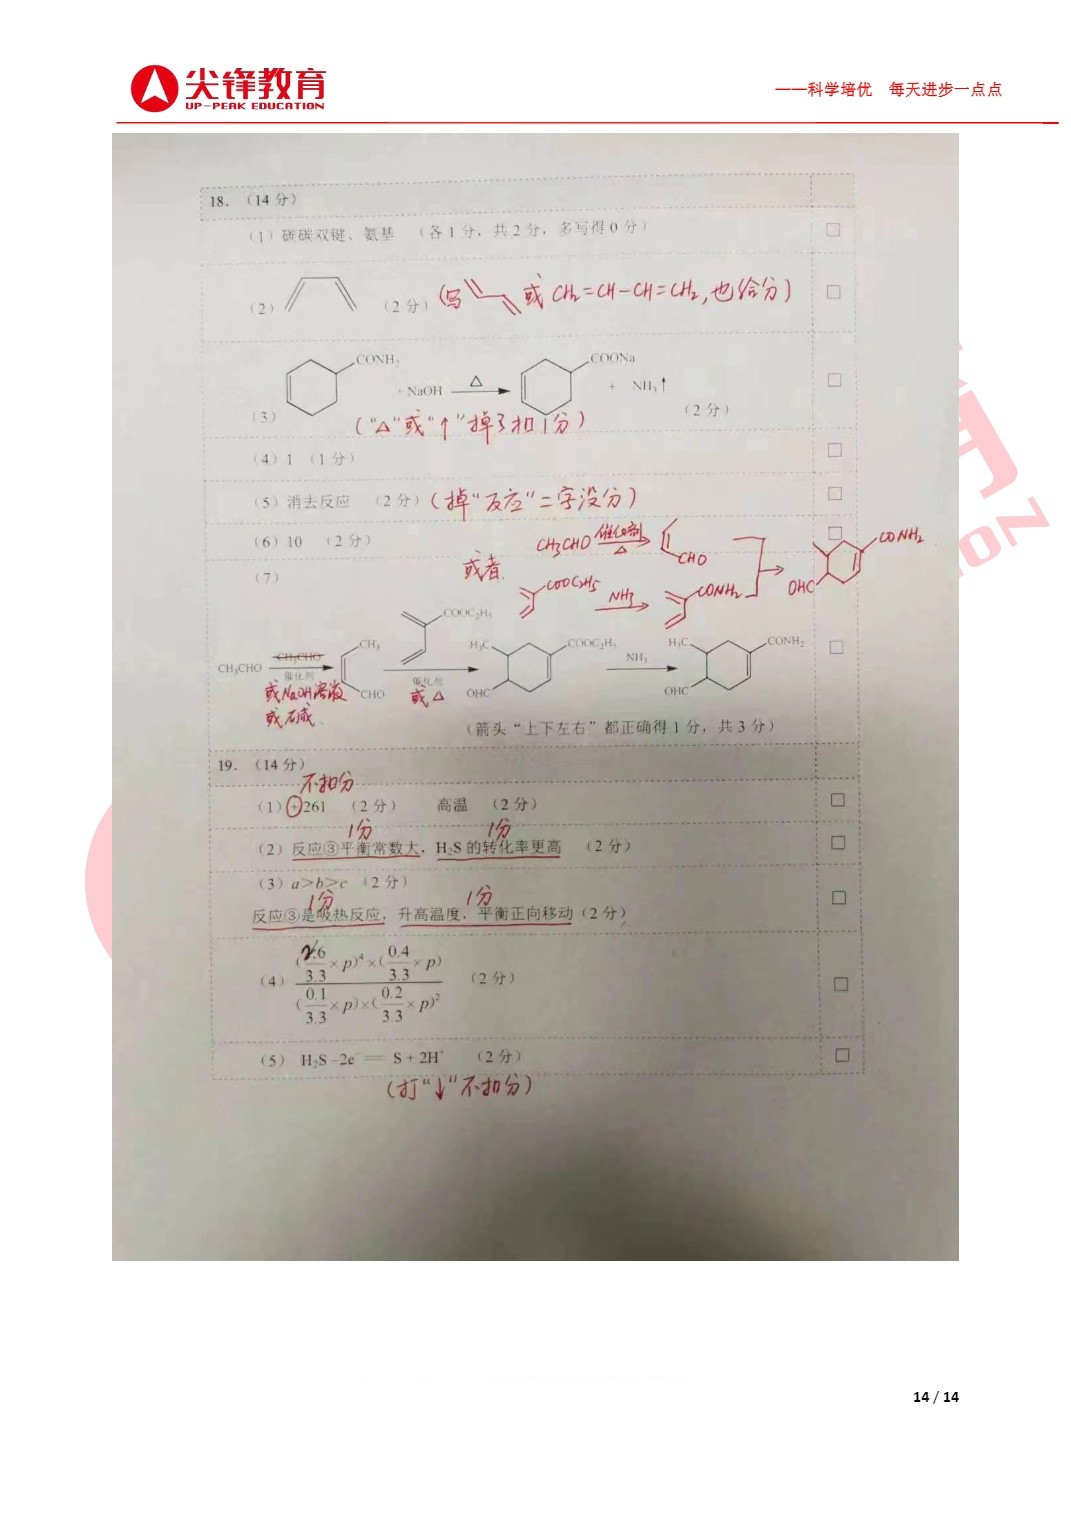 尖锋教育
UP-PEAK EDUCATION
——科学培优 每天进步一点点
18. (14 分)
(1) 碳碳双键、氨基 (各 1 分,共 2 分,多写得 0 分)
(2) (2 分) (写 或 CH₂=CH-CH=CH₂,也给分)
(3) CONH₂ + NaOH △ COONa + NH₃↑ (2 分)
("△"或"↑"掉了扣1分)
(4) 1 (1 分)
(5) 消去反应 (2 分) (掉"反应"二字没分)
(6) 10 (2 分)
(7)
或者. CH₃CHO 催化剂 △ CHO
COOC₂H₅ NH₃ CONH₂ OHC CONH₂
CH₃CHO CH₃CHO 催化剂 CH₃ CHO COOC₂H₅ 催化剂 H₃C OHC COOC₂H₅ NH₃ H₃C OHC CONH₂
或NaOH溶液 或△
或石碱.
(箭头"上下左右"都正确得 1 分,共 3 分)
19. (14 分)
不扣分
(1) +261 (2 分) 高温 (2 分)
1分 1分
(2) 反应③平衡常数大,H₂S 的转化率更高 (2 分)
(3) a>b>c (2 分)
1分 1分
反应③是吸热反应,升高温度,平衡正向移动 (2 分)
(4) (2.6/3.3×p)⁴×(0.4/3.3×p) / (0.1/3.3×p)×(0.2/3.3×p)² (2 分)
(5) H₂S-2e⁻ == S+2H⁺ (2 分)
(打"↓"不扣分)
14 / 14